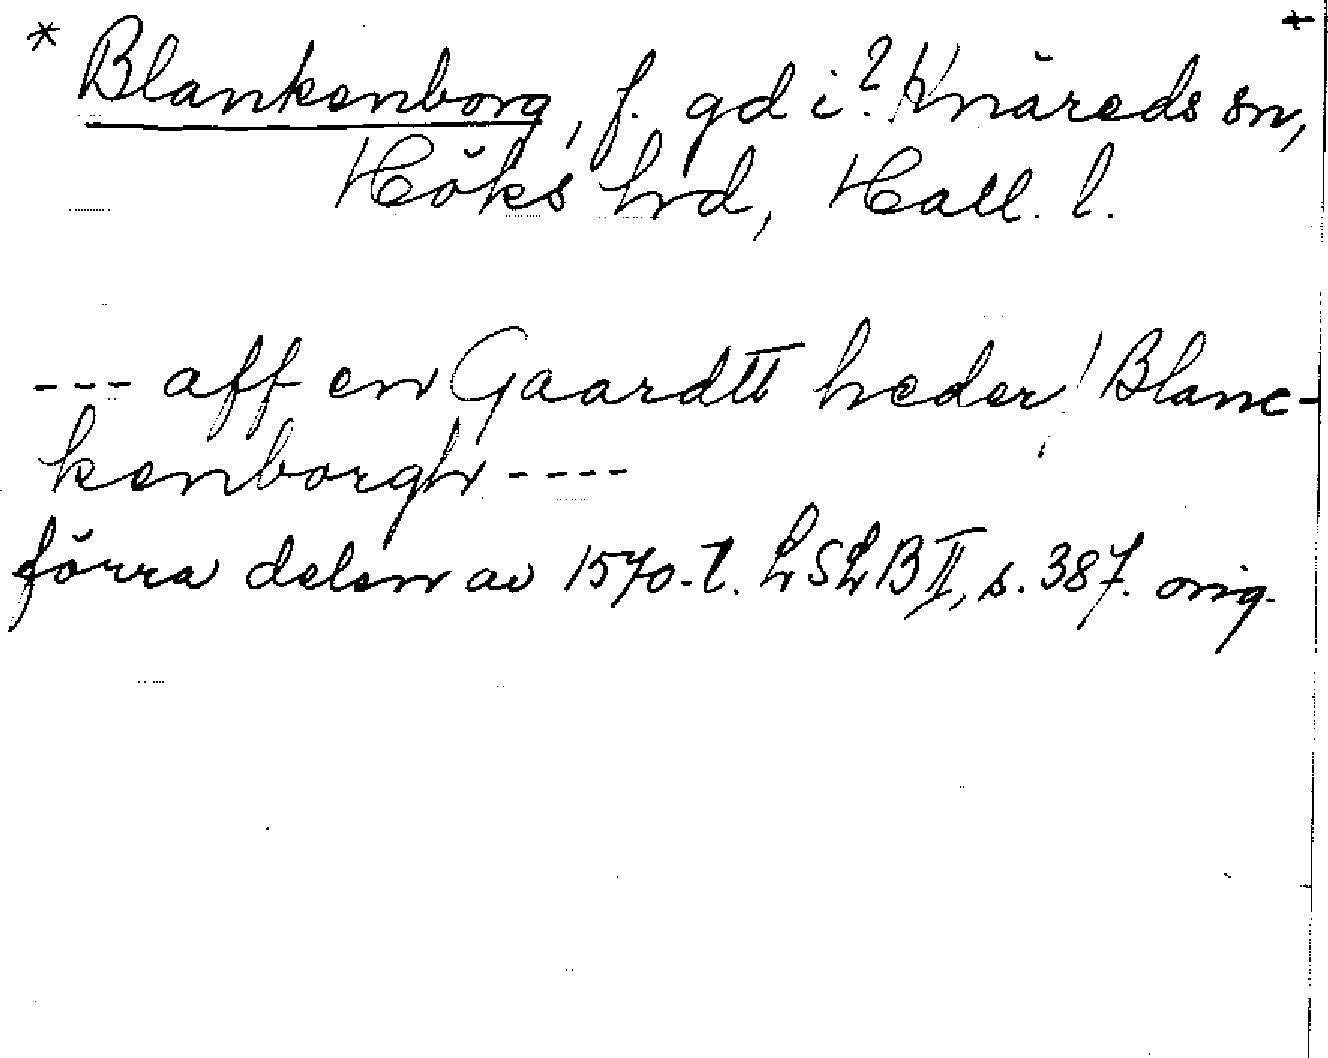 * Blankenborg, f. gd i? Knäreds sn, +
Höks hd, Hall. l.
--- aff en Gaardtt heder! Blanc-
kenborgh ----
förra delen av 1570-t. LSLB II, s. 387. orig.